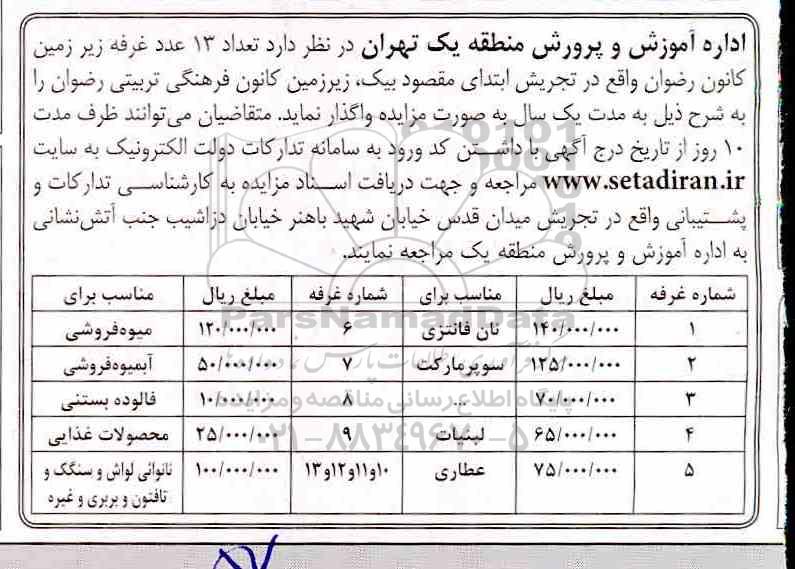 اداره آموزش و پرورش منطقه یک تهران در نظر دارد تعداد ۱۳ عدد غرفه زیر زمین
کانون رضوان واقع در تجریش ابتدای مقصود بیک، زیرزمین کانون فرهنگی تربیتی رضوان را
به شرح ذیل به مدت یک سال به صورت مزایده واگذار نماید. متقاضیان می‌توانند ظرف مدت
۱۰ روز از تاریخ درج آگهی با داشتن کد ورود به سامانه تدارکات دولت الکترونیک به سایت
www.setadiran.ir مراجعه و جهت دریافت اسناد مزایده به کارشناسی تدارکات و
پشتیبانی واقع در تجریش میدان قدس خیابان شهید باهنر خیابان دزاشیب جنب آتش‌نشانی
به اداره آموزش و پرورش منطقه یک مراجعه نمایند.
شماره غرفه مبلغ ریال مناسب برای شماره غرفه مبلغ ریال مناسب برای
۱ ۱۴۰/۰۰۰/۰۰۰ نان فانتزی ۶ ۱۲۰/۰۰۰/۰۰۰ میوه‌فروشی
۲ ۱۲۵/۰۰۰/۰۰۰ سوپرمارکت ۷ ۵۰/۰۰۰/۰۰۰ آبمیوه‌فروشی
۳ ۷۰/۰۰۰/۰۰۰ ... ۸ ۱۰/۰۰۰/۰۰۰ فالوده بستنی
۴ ۶۵/۰۰۰/۰۰۰ لبنیات ۹ ۲۵/۰۰۰/۰۰۰ محصولات غذایی
۵ ۷۵/۰۰۰/۰۰۰ عطاری ۱۰و۱۱و۱۲و۱۳ ۱۰۰/۰۰۰/۰۰۰ نانوائی لواش و سنگک و
تافتون و بربری و غیره
ParsNamadData
پایگاه اطلاع رسانی مناقصه و مزایده
۰۲۱-۸۸۳۴۹۶۷۰-۵